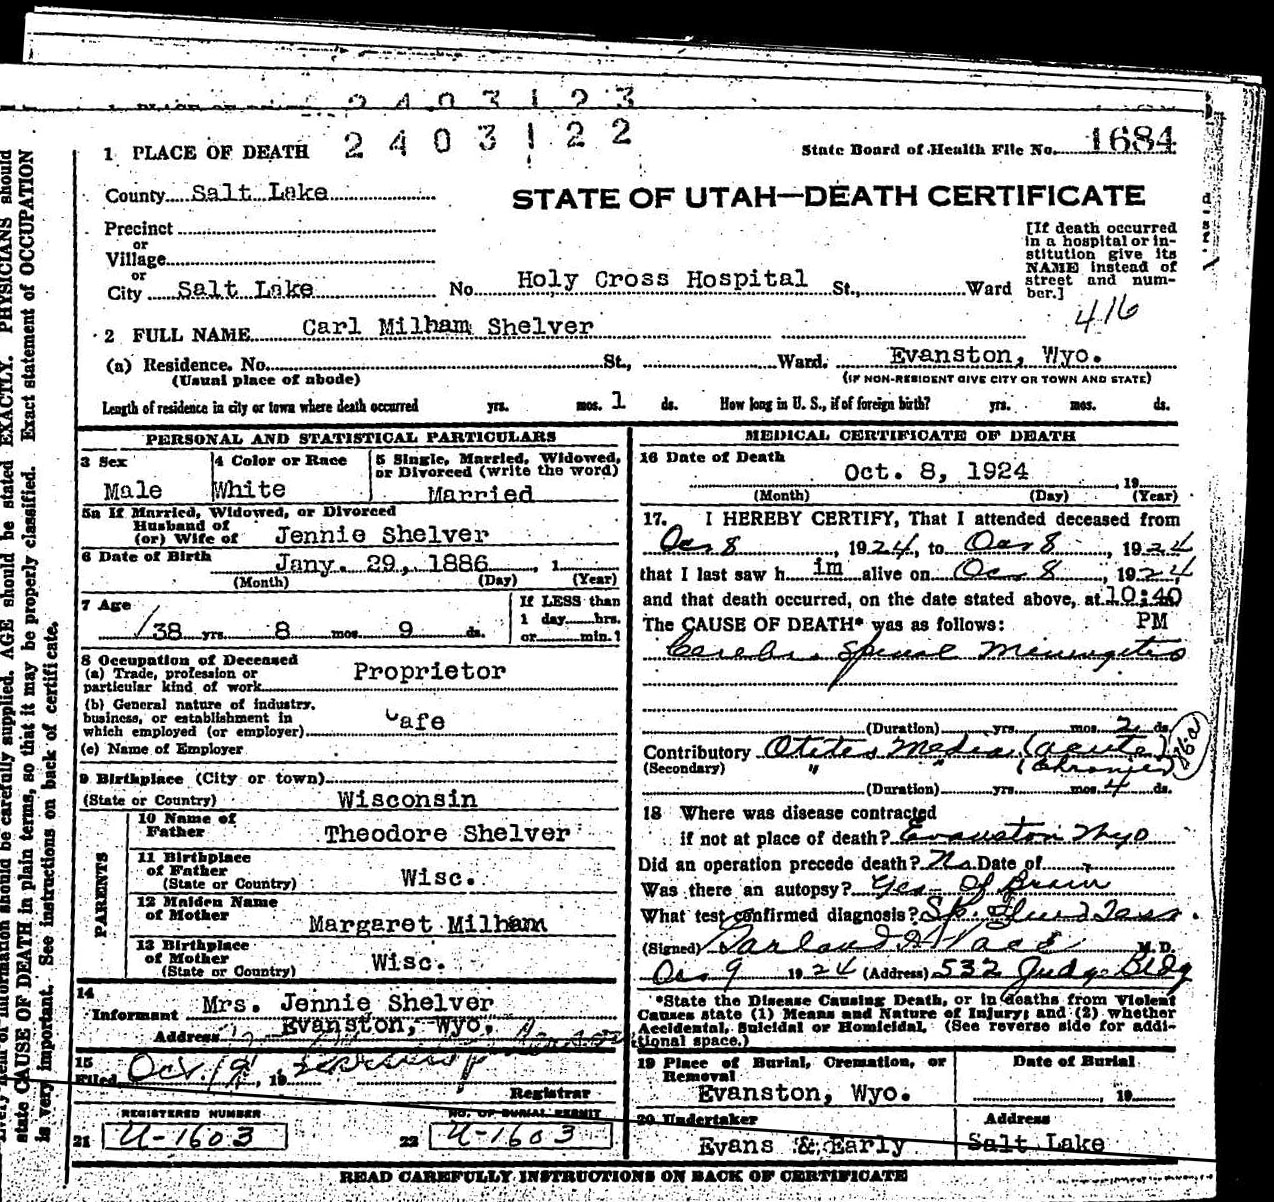 2403123
2403122
1 PLACE OF DEATH
State Board of Health File No. 1684
County Salt Lake
STATE OF UTAH—DEATH CERTIFICATE
Precinct
or
Village
or
City Salt Lake No. Holy Cross Hospital St., Ward
[If death occurred
in a hospital or in-
stitution give its
NAME instead of
street and num-
ber.]
416
2 FULL NAME Carl Milham Shelver
(a) Residence. No. St., Ward. Evanston, Wyo.
(Usual place of abode) (IF NON-RESIDENT GIVE CITY OR TOWN AND STATE)
Length of residence in city or town where death occurred yrs. mos. 1 ds. How long in U. S., if of foreign birth? yrs. mos. ds.
PERSONAL AND STATISTICAL PARTICULARS
3 Sex
Male
4 Color or Race
White
5 Single, Married, Widowed,
or Divorced (write the word)
Married
5a If Married, Widowed, or Divorced
Husband of
(or) Wife of Jennie Shelver
6 Date of Birth Jany. 29, 1886, 1
(Month) (Day) (Year)
7 Age
38 yrs. 8 mos. 9 ds.
If LESS than
1 day hrs.
or min.?
8 Occupation of Deceased
(a) Trade, profession or
particular kind of work Proprietor
(b) General nature of industry,
business, or establishment in
which employed (or employer) Cafe
(c) Name of Employer
9 Birthplace (City or town)
(State or Country) Wisconsin
PARENTS
10 Name of
Father Theodore Shelver
11 Birthplace
of Father
(State or Country) Wisc.
12 Maiden Name
of Mother Margaret Milham
13 Birthplace
of Mother
(State or Country) Wisc.
14
Informant Mrs. Jennie Shelver
Address Evanston, Wyo.
15
Filed Oct. 19
Registrar
REGISTERED NUMBER
21 U-1603
NO. OF BURIAL PERMIT
22 U-1603
MEDICAL CERTIFICATE OF DEATH
16 Date of Death
Oct. 8, 1924, 19
(Month) (Day) (Year)
17. I HEREBY CERTIFY, That I attended deceased from
Oct 8, 1924, to Oct 8, 1924
that I last saw h im alive on Oct 8, 1924
and that death occurred, on the date stated above, at 10:40
PM
The CAUSE OF DEATH* was as follows:
Cerebro Spinal Meningitis
(Duration) yrs. mos. 2 ds.
Contributory Otites Media (acute)
(Secondary) " " (Chronic)
86-a
(Duration) yrs. mos. 4 ds.
18 Where was disease contracted
if not at place of death? Evanston Wyo
Did an operation precede death? No Date of
Was there an autopsy? Yes - of Brain
What test confirmed diagnosis? Sp. Fluid Test.
(Signed) Garland H Pace M. D.
Oct 9 1924 (Address) 532 Judge Bldg
*State the Disease Causing Death, or in deaths from Violent
Causes state (1) Means and Nature of Injury; and (2) whether
Accidental, Suicidal or Homicidal. (See reverse side for addi-
tional space.)
19 Place of Burial, Cremation, or
Removal
Evanston, Wyo.
Date of Burial
, 19
20 Undertaker
Evans & Early
Address
Salt Lake
READ CAREFULLY INSTRUCTIONS ON BACK OF CERTIFICATE
information should be carefully supplied. AGE should be stated EXACTLY. PHYSICIANS should
state CAUSE OF DEATH in plain terms, so that it may be properly classified. Exact statement of OCCUPATION
is very important. See instructions on back of certificate.